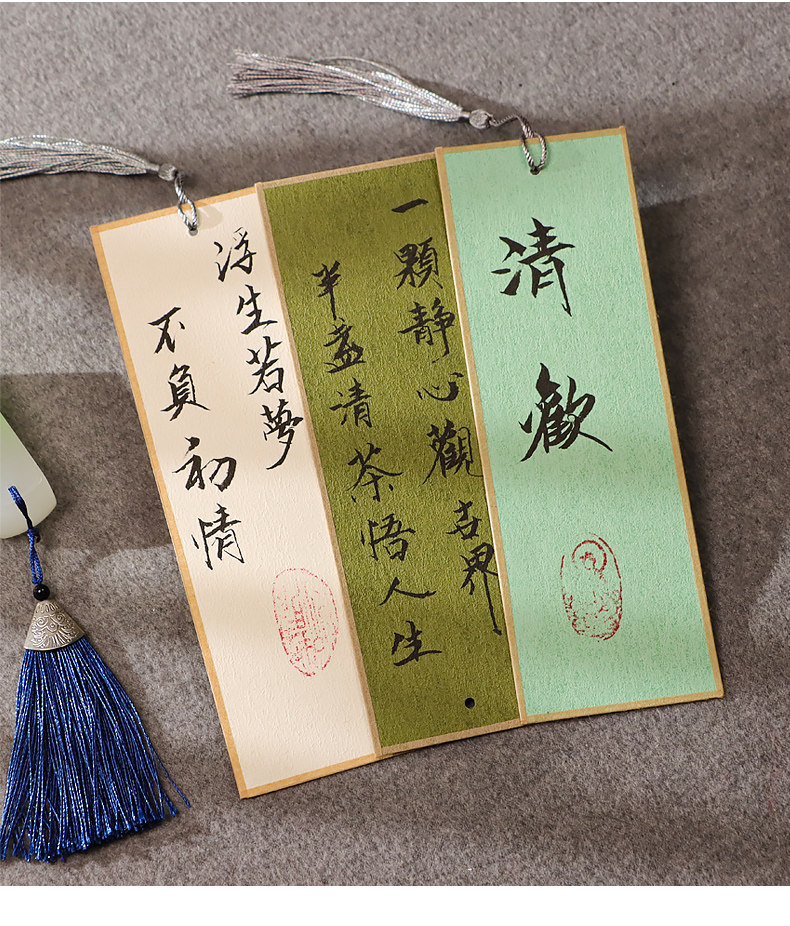 清歡
一顆靜心觀世界
半盞清茶悟人生
浮生若夢
不負初情